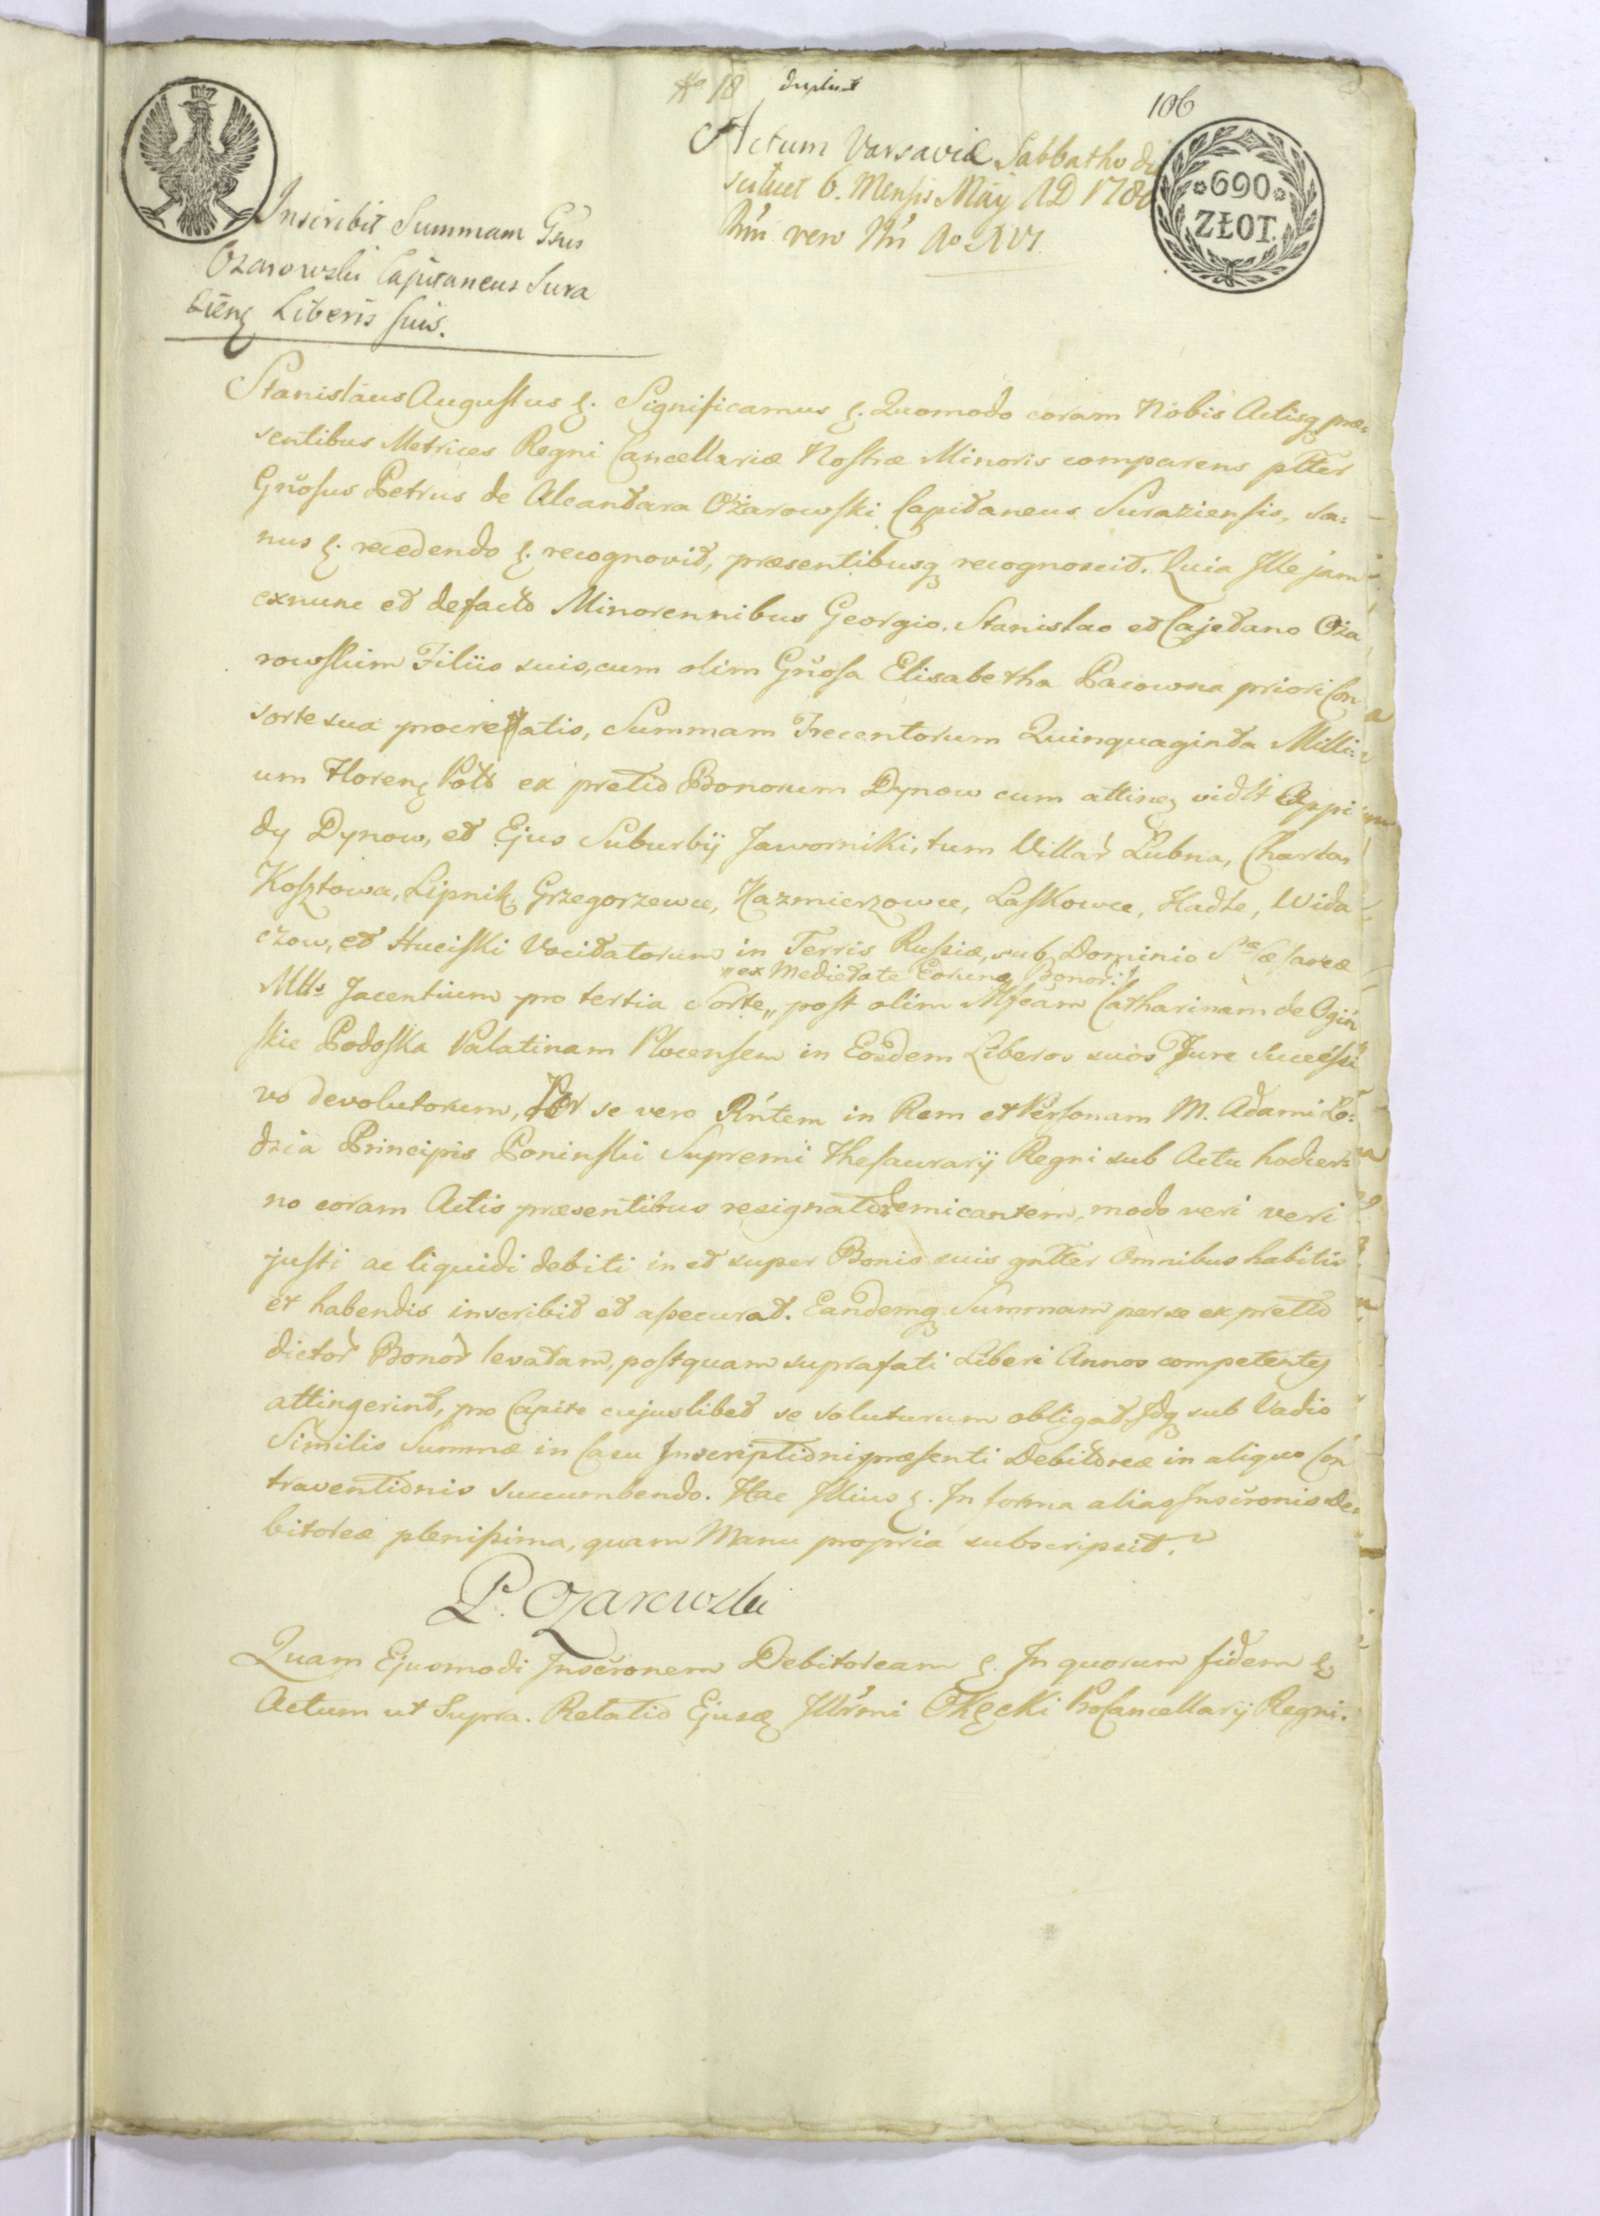 No 18 duplicat
106
Actum Varsaviæ Sabbatho die
scilicet 6. Mensis Maÿ AD 1780
Rni vero Nri Ao XVI.
690
ZŁOT.
Inscribit Summam Gsus
Ożarowski Capitaneus Sura
zieng Liberis suis.
Stanislaus Augustus &. Significamus &. Quomodo coram Nobis Actisq præ-
sentibus Metrices Regni Cancellariæ Nostræ Minoris comparens pltter
Gñosus Petrus de Alcantara Ożarowski Capitaneus Suraziensis, sa-
nus &. recedendo &. recognovit, præsentibusq recognoscit. Quia Ille jam
exnunc et defacto Minorennibus Georgio, Stanislao et Cajetano Oża
rowskim Filiis suis, cum olim Gñosa Elisabetha Pacowna priori Con
sorte sua procreatis, Summam Trecentorum Quinquaginta Milli-
um Floreng Polo ex pretio Bonorum Dynow cum attineg vidlt Oppi
dy Dynow, et Ejus Suburbÿ Jaworniki, tum Villar Łubna, Charta,
Kosztowa, Lipnik, Grzegorzewce, Kazmierzowce, Laskowce, Hadte, Wida
czow, et Huciski Vocitatorum in Terris Russiæ, sub Dominio S Cæsareæ
"ex Medietate Eorunq Bonor:
Mtts Jacentium pro tertia Sorte,, post olim Mfcam Catharinam de Ogiń
skie Podoska Palatinam Plocensem in Eosdem Liberos suos Jure Successi
vo devolutorum, Per se vero Rńtem in Rem et Personam M. Adami Ło-
dzia Principis Poninski Supremi Thesaurarÿ Regni sub Actu hodier-
no coram Actis præsentibus resignatio emicantem, modo veri veri
justi ac liquidi debiti in et super Bonis suis gntter Omnibus habitis
et habendis inscribit et assecurat. Eandemq Summam per se ex pretio
dictor Bonor levatam, postquam suprafati Liberi Annos competentes
attingerint, pro Capite cujuslibet se soluturum obligat, Idq sub Vadio
Similis Summæ in Casu Inscriptioni præsenti Debitoreæ in aliquo Con
traventionis succumbendo. Hac Illius &. In forma alias Inscronis De-
bitoreæ plenissima, quam Manu propria subscripsit.
P. Ożarowski
Quam Ejusmodi Inscronem Debitoream &. In quorum fidem &
Actum ut Supra. Relatio Ejusq Illrmi Okęcki ProCancellarÿ Regni.